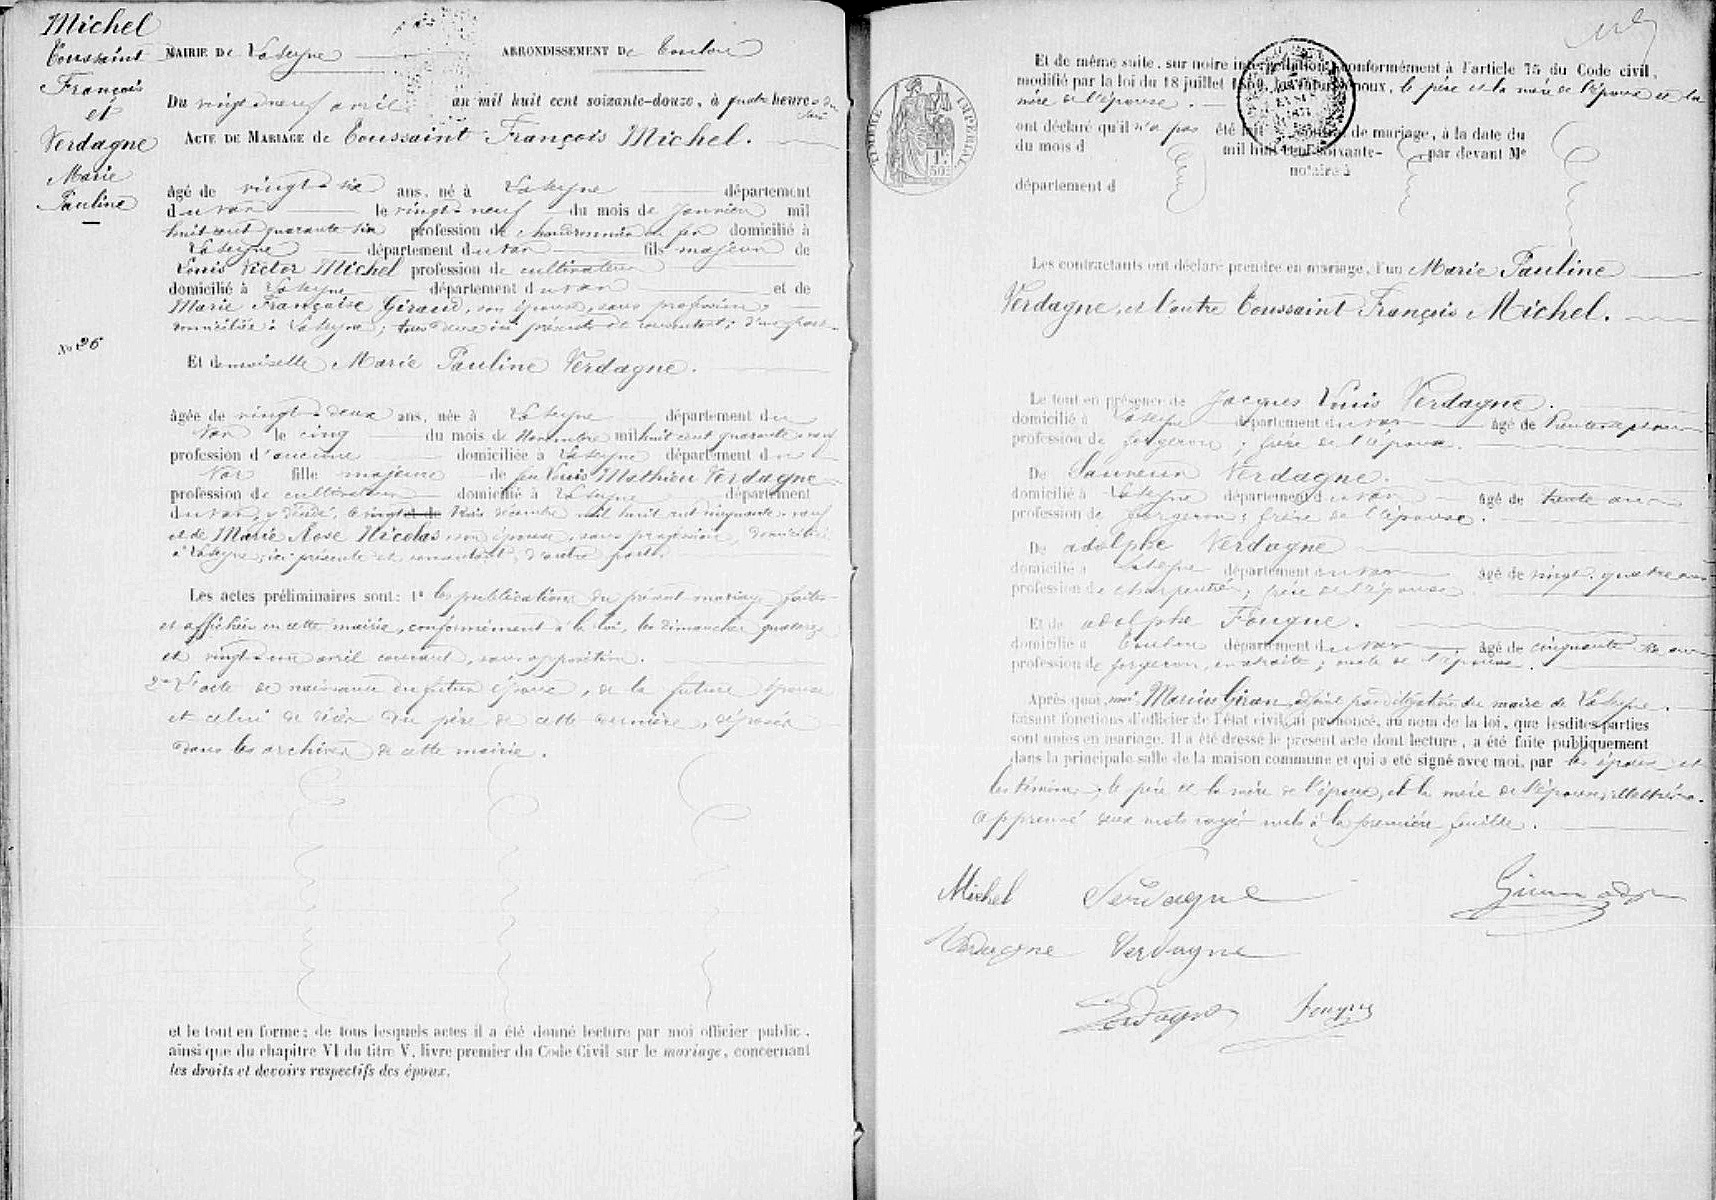 Michel
Toussaint
François
et
Verdagne
Marie
Pauline
No 26
MAIRIE DE Laseyne ARRONDISSEMENT DE Toulon
Du vingt neuf avril an mil huit cent soixante-douze, à quatre heures du soir
ACTE DE MARIAGE de Toussaint François Michel.
âgé de vingt-six ans, né à Laseyne département
du var le vingt-neuf du mois de Janvier mil
huit cent quarante-six profession de chaudronnier en fer domicilié à
Laseyne département du var fils majeur de
Louis Victor Michel profession de cultivateur
domicilié à Laseyne département du var et de
Marie Françoise Giraud, son épouse, sans profession,
domiciliée à Laseyne; tous deux ici présents et consentants; d'une part.
Et demoiselle Marie Pauline Verdagne.
âgée de vingt-deux ans, née à Laseyne département du
Var le cinq du mois de Novembre mil huit cent quarante-neuf
profession d'aucune domiciliée à Laseyne département du
Var fille majeure de feu Louis Mathieu Verdagne
profession de cultivateur domicilié à Laseyne département
du var, y décédé, le vingt trois décembre mil huit cent cinquante-neuf
et de Marie Rose Nicolas son épouse, sans profession, domiciliée
à Laseyne, ici présente et consentante, d'autre part.
Les actes préliminaires sont: 1° les publications du présent mariage faites
et affichées en cette mairie, conformément à la loi, les dimanches quatorze
et vingt-un avril courant, sans opposition.
2° L'acte de naissance du futur époux, de la future épouse
et celui de décès du père de cette dernière, déposés
dans les archives de cette mairie.
et le tout en forme; de tous lesquels actes il a été donné lecture par moi officier public,
ainsi que du chapitre VI du titre V, livre premier du Code Civil sur le mariage, concernant
les droits et devoirs respectifs des époux.
TIMBRE IMPERIAL
1F
50c
Et de même suite, sur notre interpellation, conformément à l'article 75 du Code civil,
modifié par la loi du 18 juillet 1850, les futurs époux, le père et la mère de l'époux et la
mère de l'épouse.
ont déclaré qu'il n'a pas été fait de mariage, à la date du
du mois d mil huit cent soixante- par devant Me
notaire à
département d
Les contractants ont déclaré prendre en mariage, l'un Marie Pauline
Verdagne, et l'autre Toussaint François Michel.
Le tout en présence de Jacques Louis Verdagne.
domicilié à Laseyne département du var âgé de
profession de forgeron; frère de l'épouse.
De Sauveur Verdagne.
domicilié à Laseyne département du var âgé de trente ans
profession de forgeron; frère de l'épouse.
De adolphe Verdagne
domicilié à Laseyne département du var âgé de vingt-quatre ans
profession de charpentier; frère de l'épouse.
Et de adolphe Fouque.
domicilié à Toulon département du var âgé de cinquante ans
profession de forgeron, en retraite; de l'épouse.
Après quoi, moi Marius Giran, adjoint par délégation du maire de Laseyne.
faisant fonctions d'officier de l'état civil, ai prononcé, au nom de la loi, que lesdites parties
sont unies en mariage. Il a été dressé le présent acte dont lecture, a été faite publiquement
dans la principale salle de la maison commune et qui a été signé avec moi, par les époux et
les témoins; le père et la mère de l'époux, et la mère de l'épouse, illettrés.
Approuvé deux mots rayés nuls à la première feuille.
Michel Verdagne Giran adj
Verdagne Verdagne
Verdagne Fouque